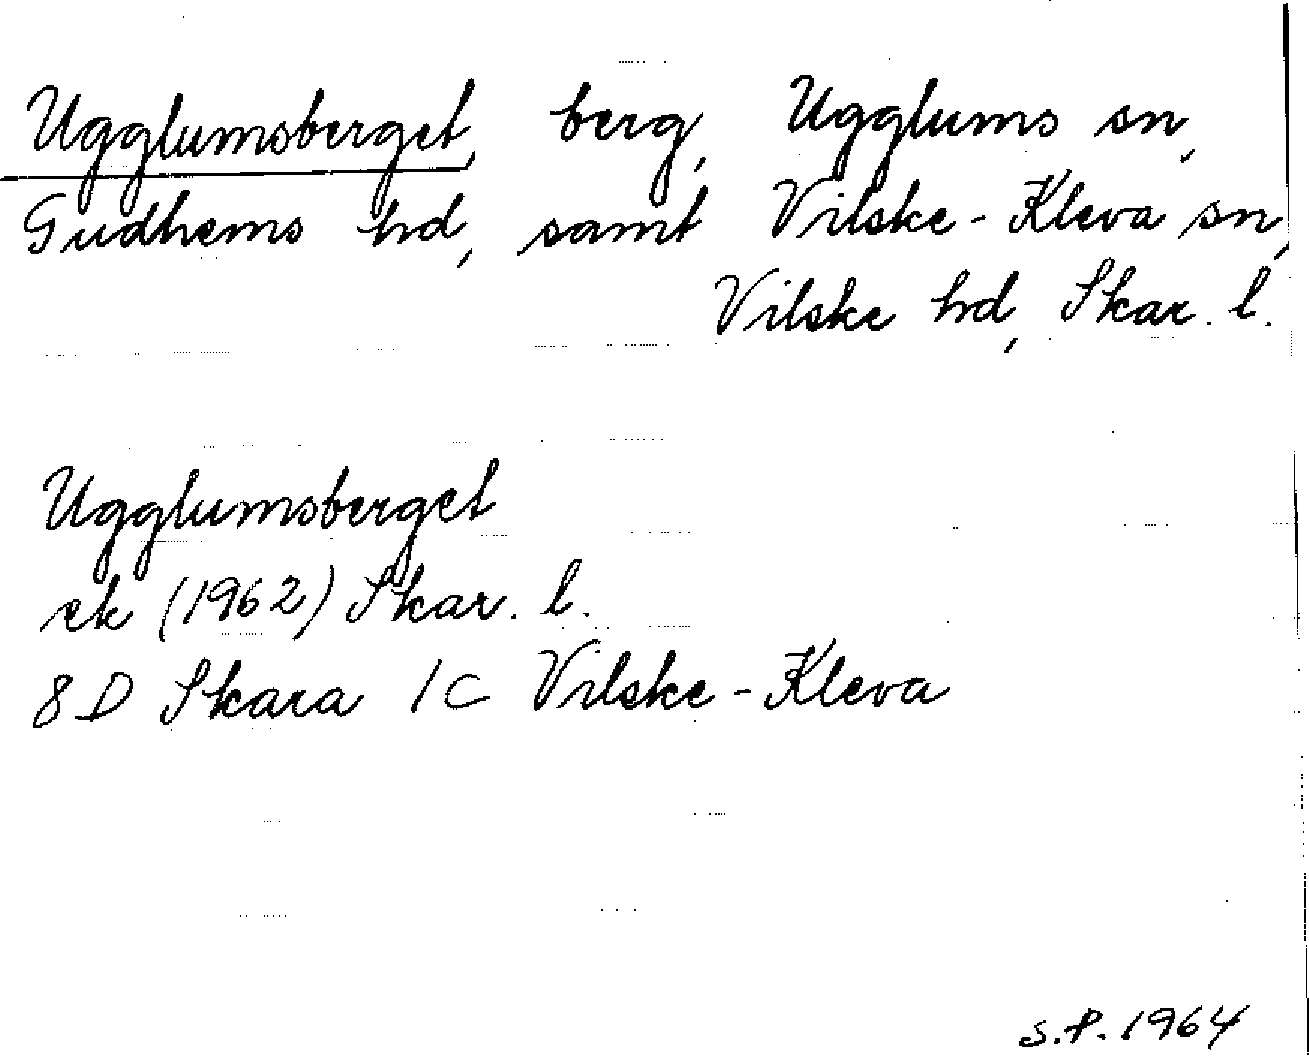 Ugglumsberget, berg, Ugglums sn,
Gudhems hd, samt Vilske-Kleva sn,
Vilske hd, Skar. l.
Ugglumsberget
ek (1962) Skar. l.
8D Skara 1c Vilske-Kleva
S.P. 1964